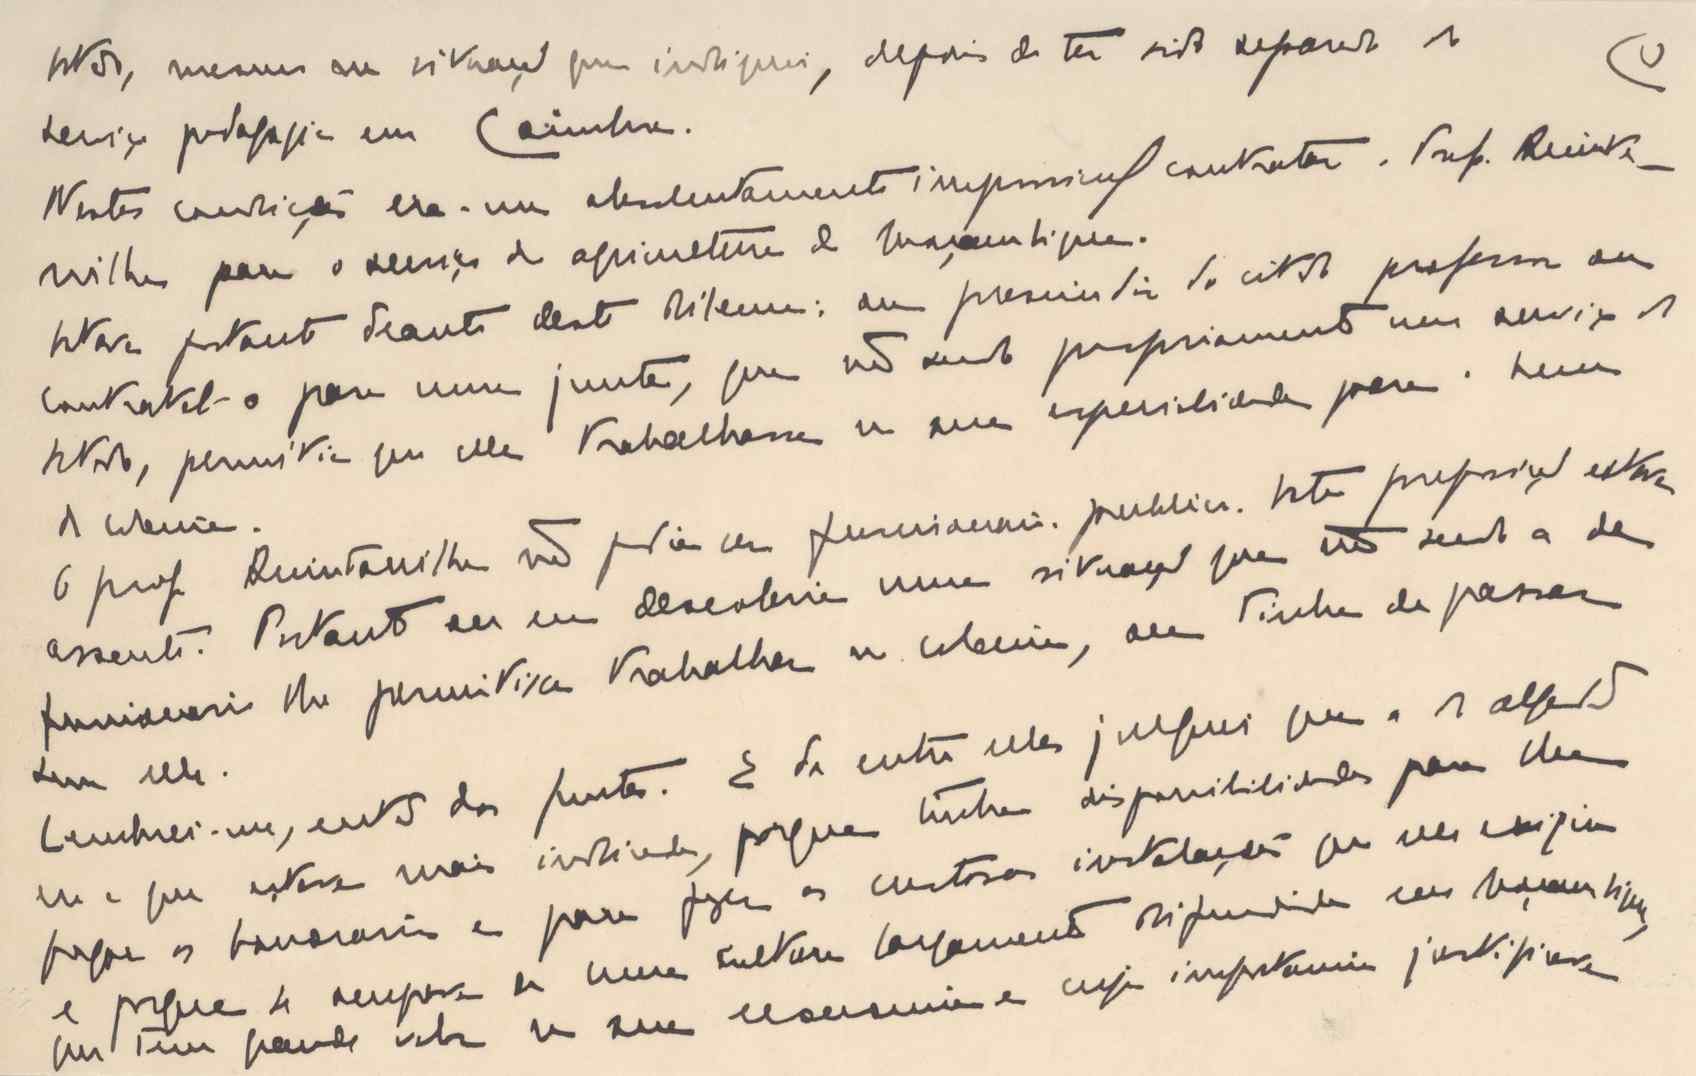 Estado, mesmo na situação que indiquei, depois de ter sido separado do
serviço pedagogico em Coimbra.
Nestas condições era-me absolutamente impossivel contratar o Prof. Quinta-
nilha para o serviço de agricultura de Moçambique.
Estava portanto deante deste dilema: ou prescindir do citado professor ou
contratal-o para uma junta, que não sendo propriamente um serviço do
Estado, permitia que elle trabalhasse na sua especialidade para o bem
da colonia.
O prof. Quintanilha não podia ser funcionario publico. Esta proposição estava
assente. Portanto ou eu descobria uma situação que não sendo a de
funcionario lhe permitisse trabalhar na colonia, ou tinha de passar
sem elle.
Lembrei-me, então das Juntas. E de entre ellas julguei que a do algodão
era a que estava mais indicada, porque tinha disponibilidades para lhe
pagar os honorarios e para fazer as custosas instalações que elle exigia
e porque se ocupava de uma cultura largamente difundida em Moçambique,
que tem grande valor na sua economia e cuja importancia justificava